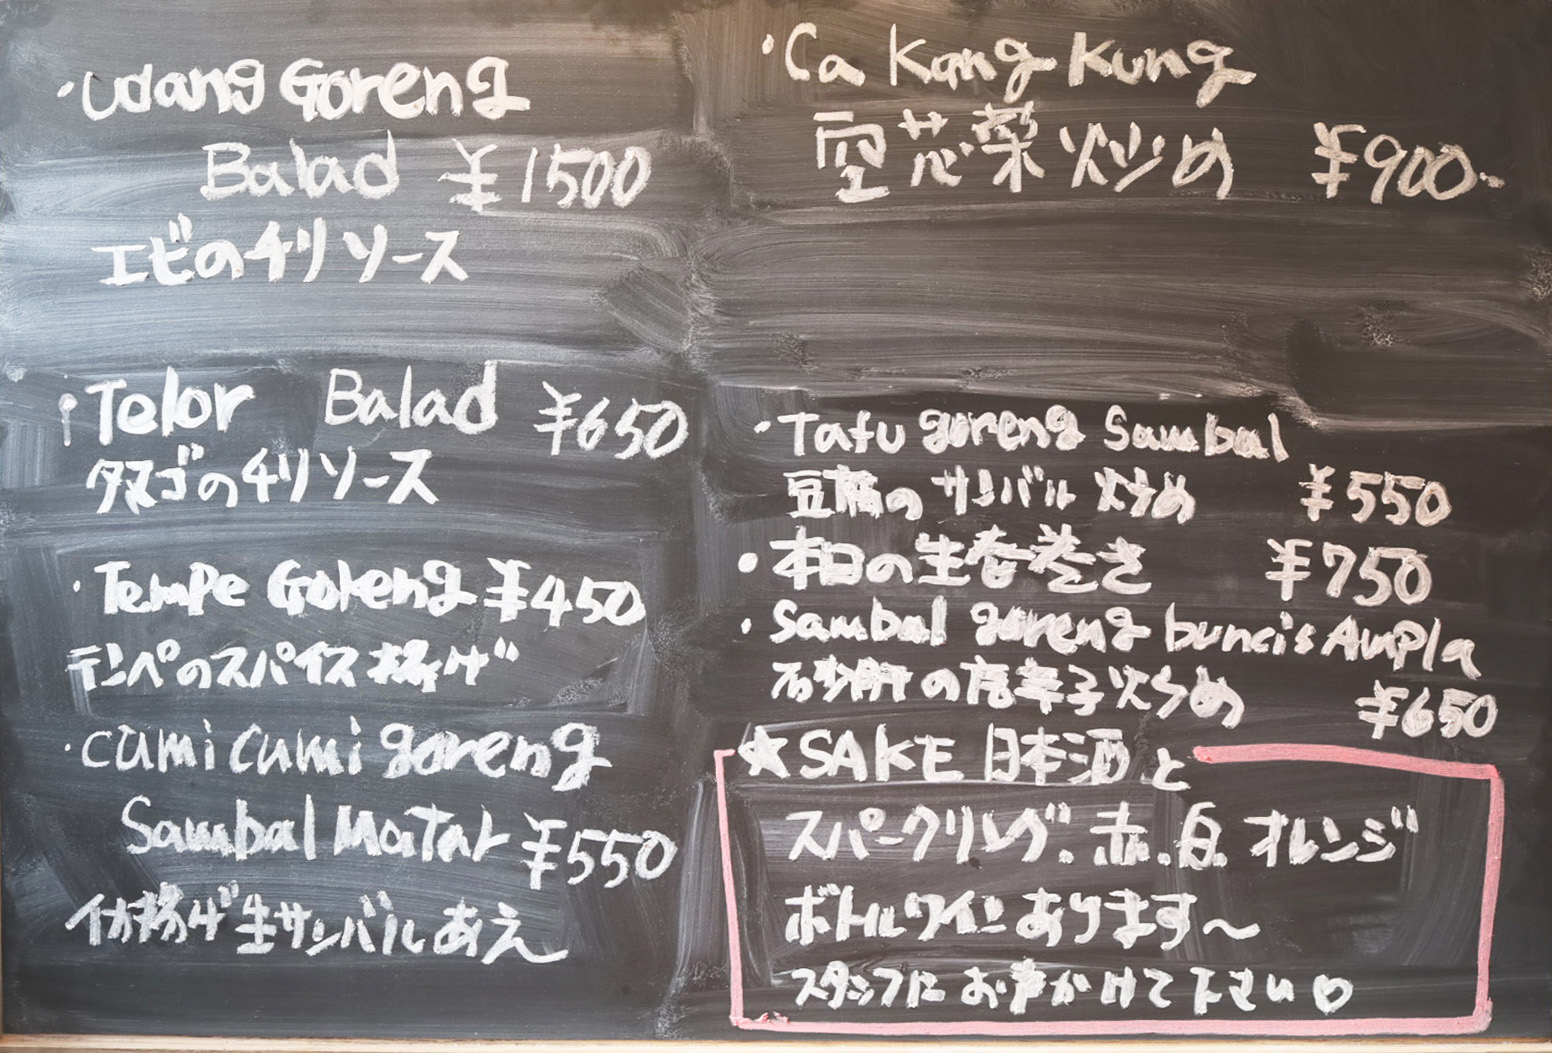 ・Udang Goreng
Balad ¥1500
エビのチリソース
・Telor Balad ¥650
タマゴのチリソース
・Tempe Goreng ¥450
テンペのスパイス揚げ
・cumi cumi goreng
Sambal Matah ¥550
イカ揚げ生サンバルあえ
・Ca Kang Kung
空芯菜炒め ¥900.
・Tafu goreng Sambal
豆腐のサンバル炒め ¥550
・本日の生春巻き ¥750
・Sambal goreng buncis Ampla
砂肝の唐辛子炒め ¥650
★SAKE 日本酒と
スパークリング.赤.白 オレンジ
ボトルワインあります〜
スタッフにお声かけて下さい♡